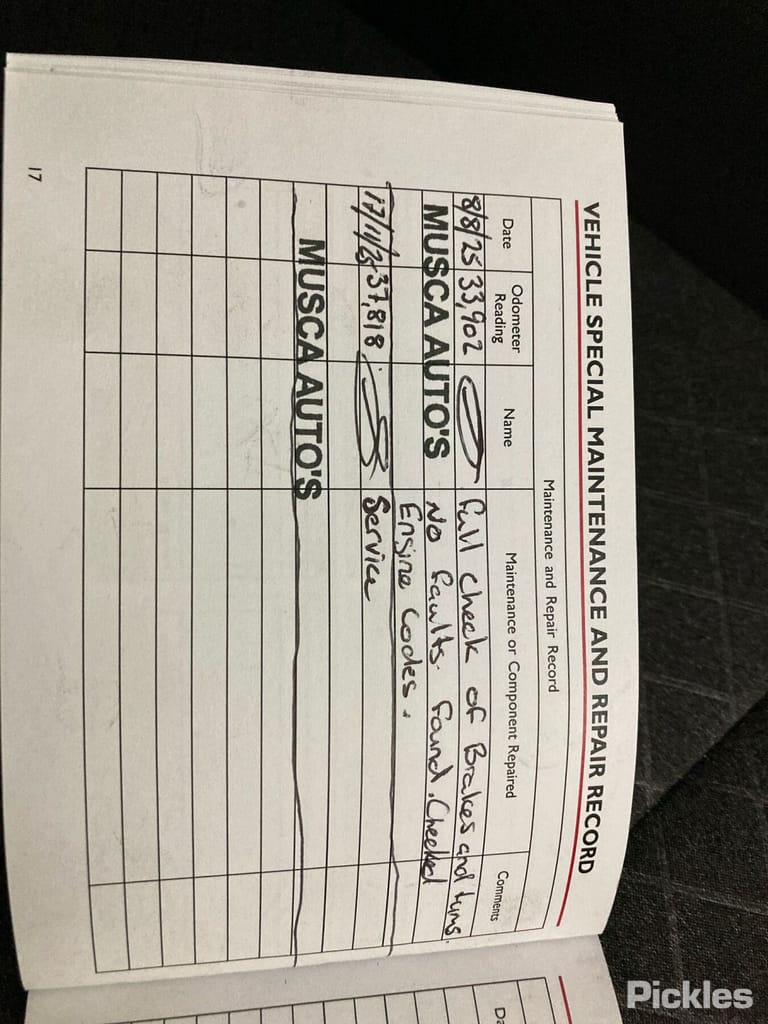 VEHICLE SPECIAL MAINTENANCE AND REPAIR RECORD
Maintenance and Repair Record
Date Odometer Reading Name Maintenance or Component Repaired Comments
8/8/25 33,902 Full check of Brakes and
MUSCA AUTO'S No faults. Found. Checked
Engine codes.
17/11/25 37,818 Service
MUSCA AUTO'S
17
Da
Pickles